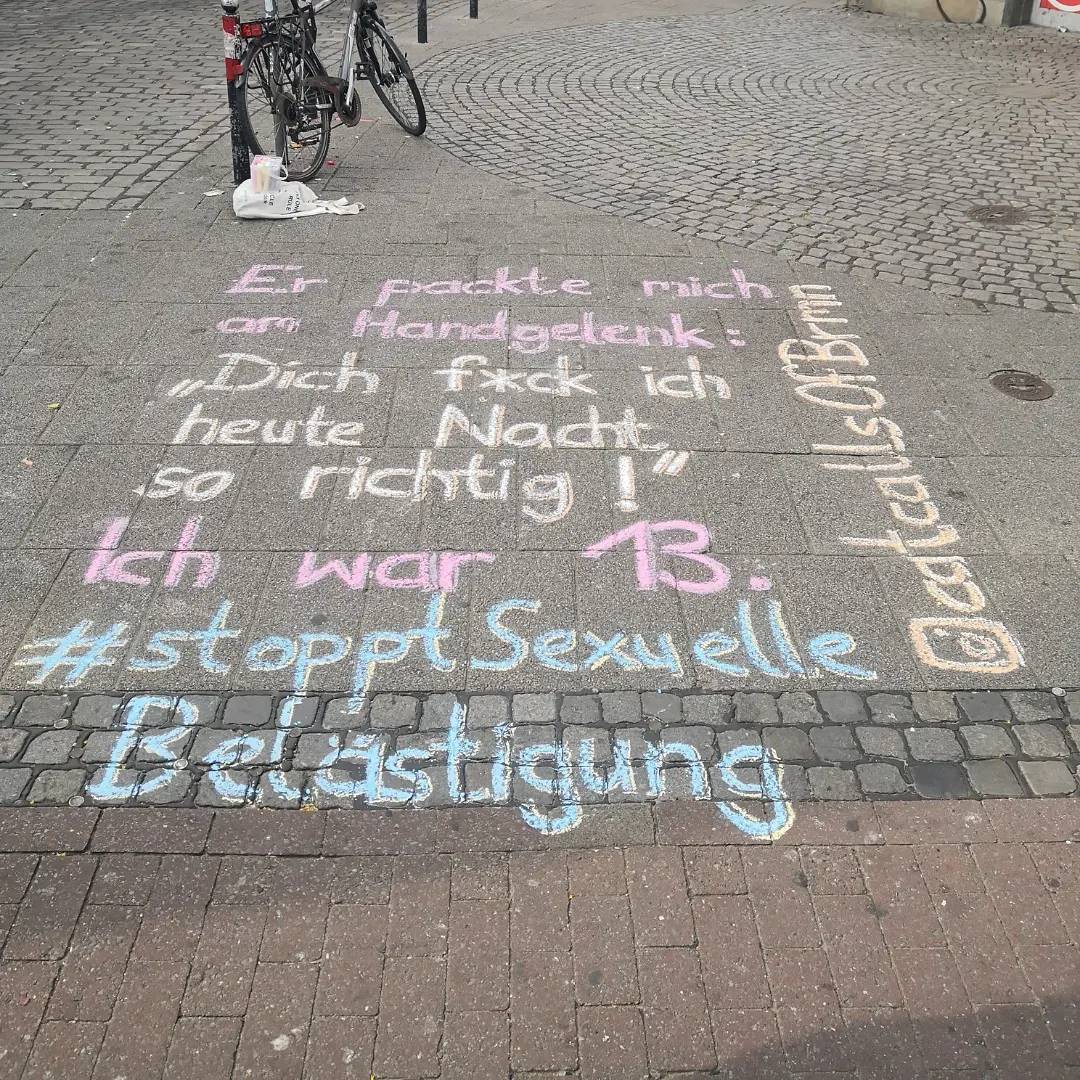 Er packte mich
am Handgelenk:
„Dich f*ck ich
heute Nacht
so richtig!”
Ich war 13.
#stoppt Sexuelle
Belästigung
catcallsOfBrmn